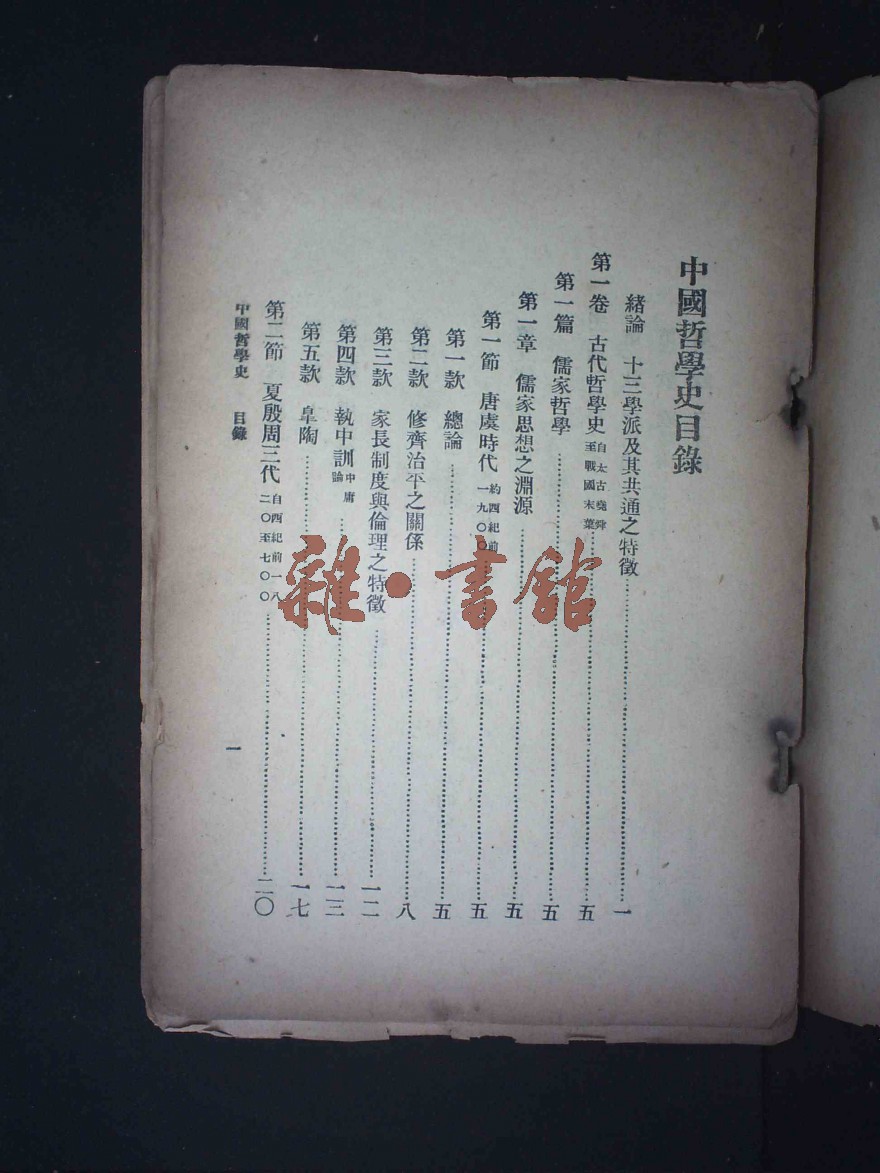 中國哲學史目錄
緒論　十三學派及其共通之特徵……一
第一卷　古代哲學史自太古堯舜至戰國末葉……五
第一篇　儒家哲學……五
第一章　儒家思想之淵源……五
第一節　唐虞時代約西紀前一九〇〇……五
第一款　總論……五
第二款　修齊治平之關係……八
第三款　家長制度與倫理之特徵……一二
第四款　執中訓中庸論……一三
第五款　皐陶……一七
第二節　夏殷周三代自西紀前一八二〇至七〇〇……二〇
中國哲學史　目錄
一
雜·書館